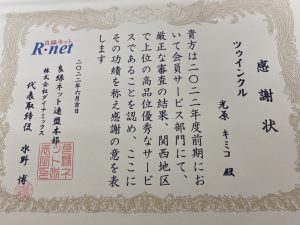 良縁ネット
R・net
感謝状
ツゥインクル
光原 キミコ 殿
貴方は二〇二二年度前期にお
いて会員サービス部門にて、
厳正な審査の結果、関西地区
で上位の高品位優秀なサービ
スであることを認め、ここに
その功績を称え感謝の意を表
します
二〇二二年六月吉日
良縁ネット連盟本部
株式会社ダイナミックス
代表取締役 水野 博